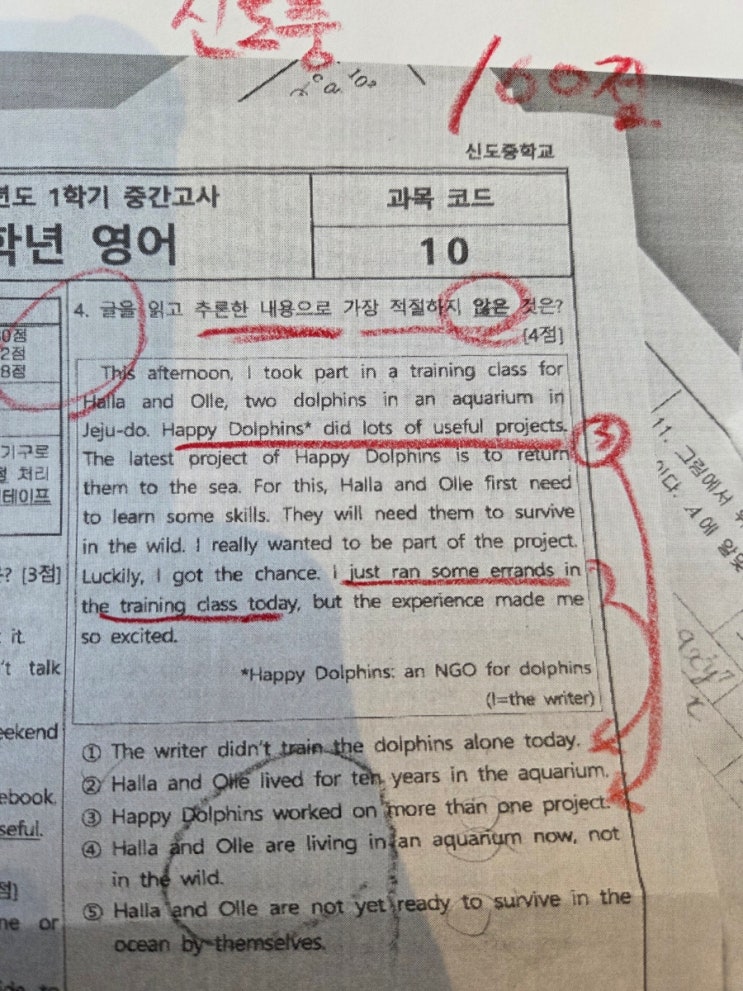 신도중
100점
신도중학교
년도 1학기 중간고사
과목 코드
학년 영어
10
0점
2점
8점
기구로
처리
테이프
? [3점]
it.
't talk
eekend
ebook.
seful.
점]
me or
4. 글을 읽고 추론한 내용으로 가장 적절하지 않은 것은?
[4점]
This afternoon, I took part in a training class for
Halla and Olle, two dolphins in an aquarium in
Jeju-do. Happy Dolphins* did lots of useful projects.
The latest project of Happy Dolphins is to return
them to the sea. For this, Halla and Olle first need
to learn some skills. They will need them to survive
in the wild. I really wanted to be part of the project.
Luckily, I got the chance. I just ran some errands in
the training class today, but the experience made me
so excited.
*Happy Dolphins: an NGO for dolphins
(I=the writer)
① The writer didn't train the dolphins alone today.
② Halla and Olle lived for ten years in the aquarium.
③ Happy Dolphins worked on more than one project.
④ Halla and Olle are living in an aquarium now, not
in the wild.
⑤ Halla and Olle are not yet ready to survive in the
ocean by themselves.
③
11. 그림에서
이다. A에 알맞